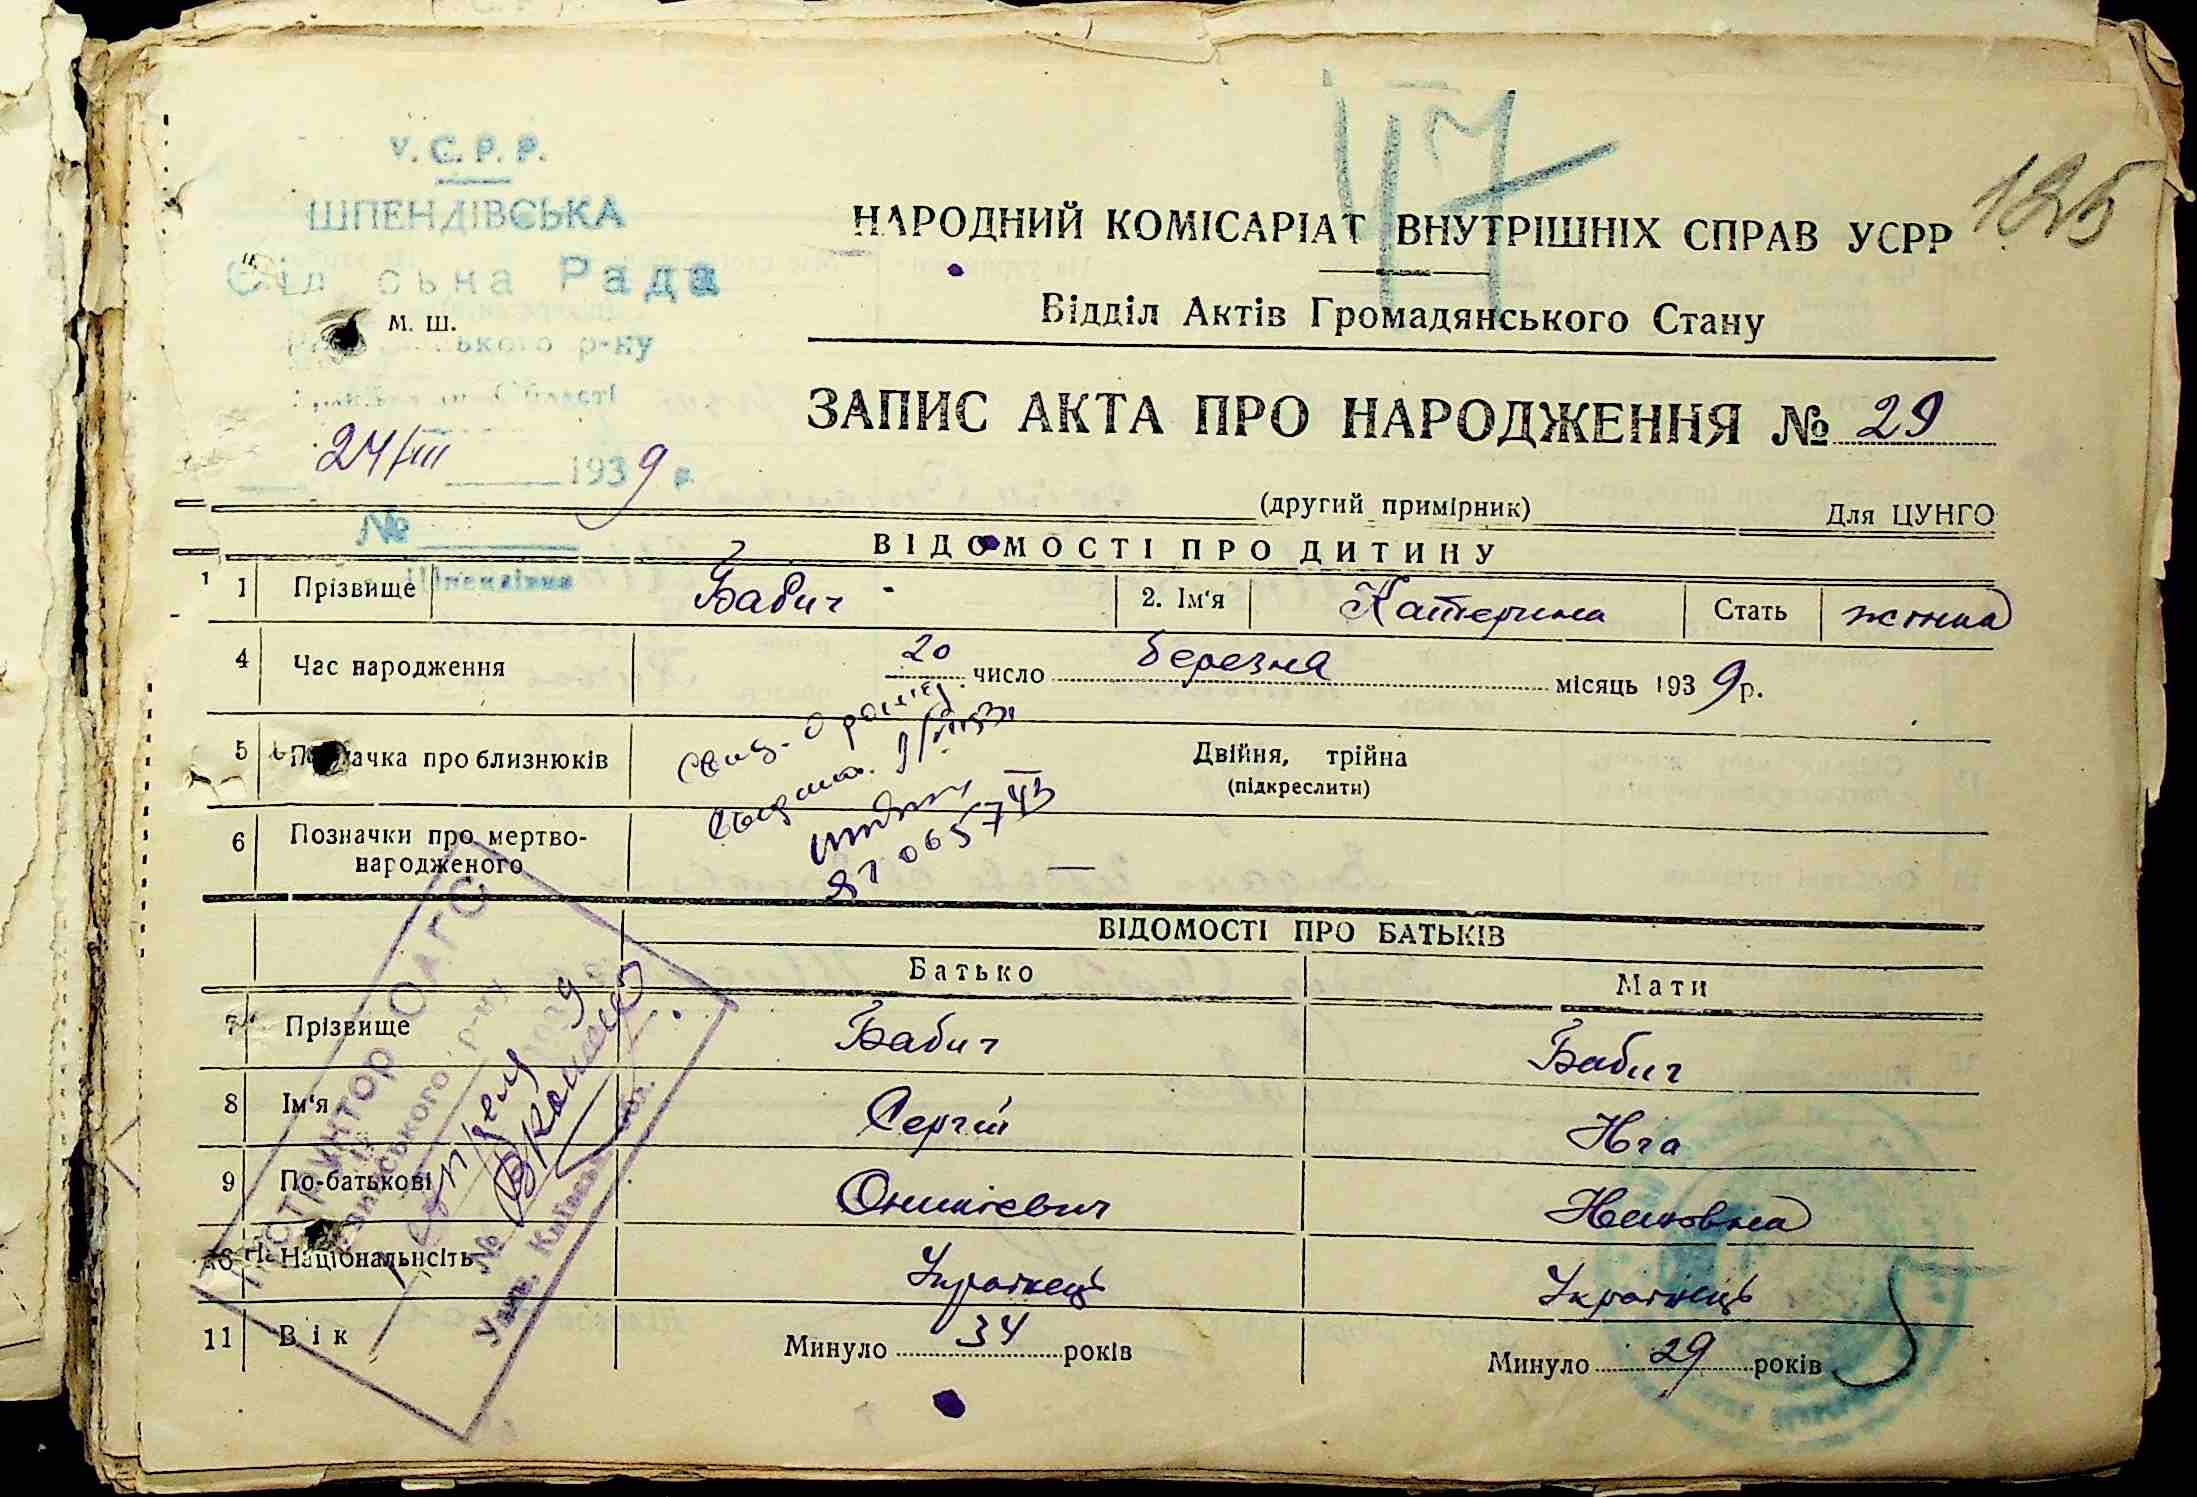 У. С. Р. Р.
ШПЕНДІВСЬКА
Рада
М. Ш.
р-ну
24/III 1939 р.
№
Шпендівка
47
185
НАРОДНИЙ КОМІСАРІАТ ВНУТРІШНІХ СПРАВ УСРР
Відділ Актів Громадянського Стану
ЗАПИС АКТА ПРО НАРОДЖЕННЯ № 29
(другий примірник) Для ЦУНГО
ВІДОМОСТІ ПРО ДИТИНУ
1 Прізвище Бабич 2. Ім'я Катерина Стать жінка
4 Час народження 20 число березня місяць 1939 р.
5 Позначка про близнюків Двійня, трійна
(підкреслити)
6 Позначки про мертво-
народженого —
ВІДОМОСТІ ПРО БАТЬКІВ
Батько Мати
7 Прізвище Бабич Бабич
8 Ім'я Сергій
9 По-батькові
Національнсіть Українець Українець
11 Вік Минуло 34 років Минуло 29 років
ІНСТРУКТОР ОАГС
р-ну
№
Київськ. обл.